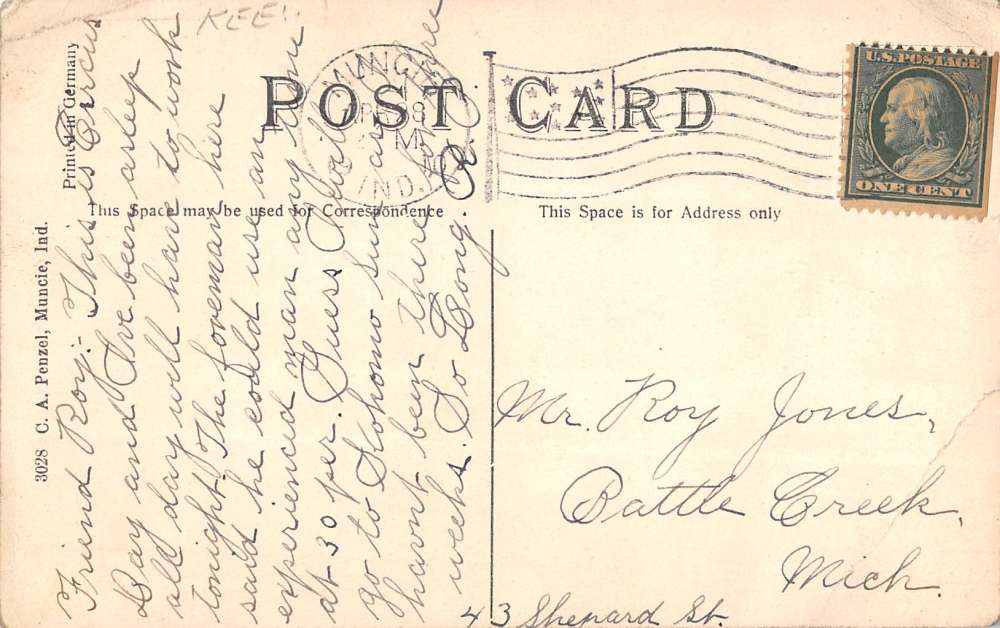 KEE
Printed in Germany
3028 C. A. Penzel, Muncie, Ind.
POST CARD
MUNCIE
IND.
U.S. POSTAGE
ONE CENT
This Space may be used for Correspondence
This Space is for Address only
Friend Roy:- This is Circus
Day and I've been asleep
all day will have to work
tonight. The foreman here
said he could use an
experienced man any time
at 30 per. Guess I will
go to Kokomo Sunday
havnt been there for three
weeks. So Long. R.
Mr. Roy Jones,
Battle Creek,
Mich.
43 Shepard St.